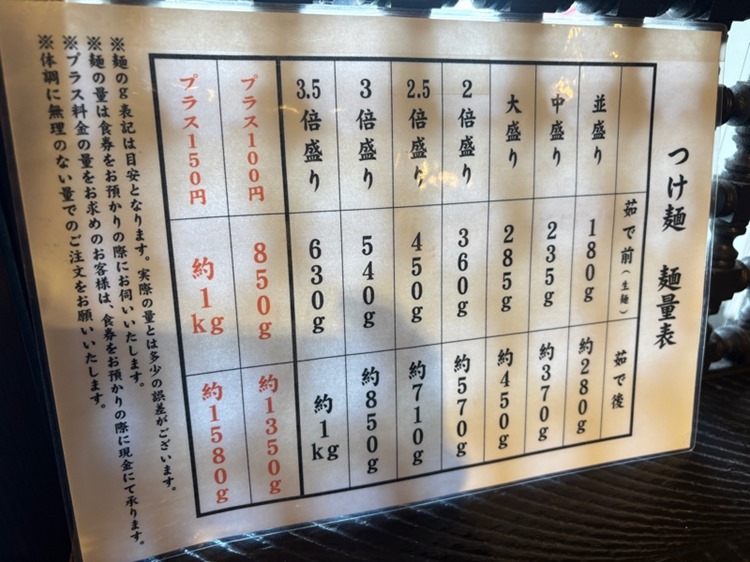 つけ麺 麺量表
茹で前(生麺) 茹で後
並盛り 180g 約280g
中盛り 235g 約370g
大盛り 285g 約450g
2倍盛り 360g 約570g
2.5倍盛り 450g 約710g
3倍盛り 540g 約850g
3.5倍盛り 630g 約1kg
プラス100円 850g 約1350g
プラス150円 約1kg 約1580g
※麺のg表記は目安となります。実際の量とは多少の誤差がございます。
※麺の量は食券をお預かりの際にお伺いいたします。
※プラス料金の量をお求めのお客様は、食券をお預かりの際に現金にて承ります。
※体調に無理のない量でのご注文をお願いいたします。